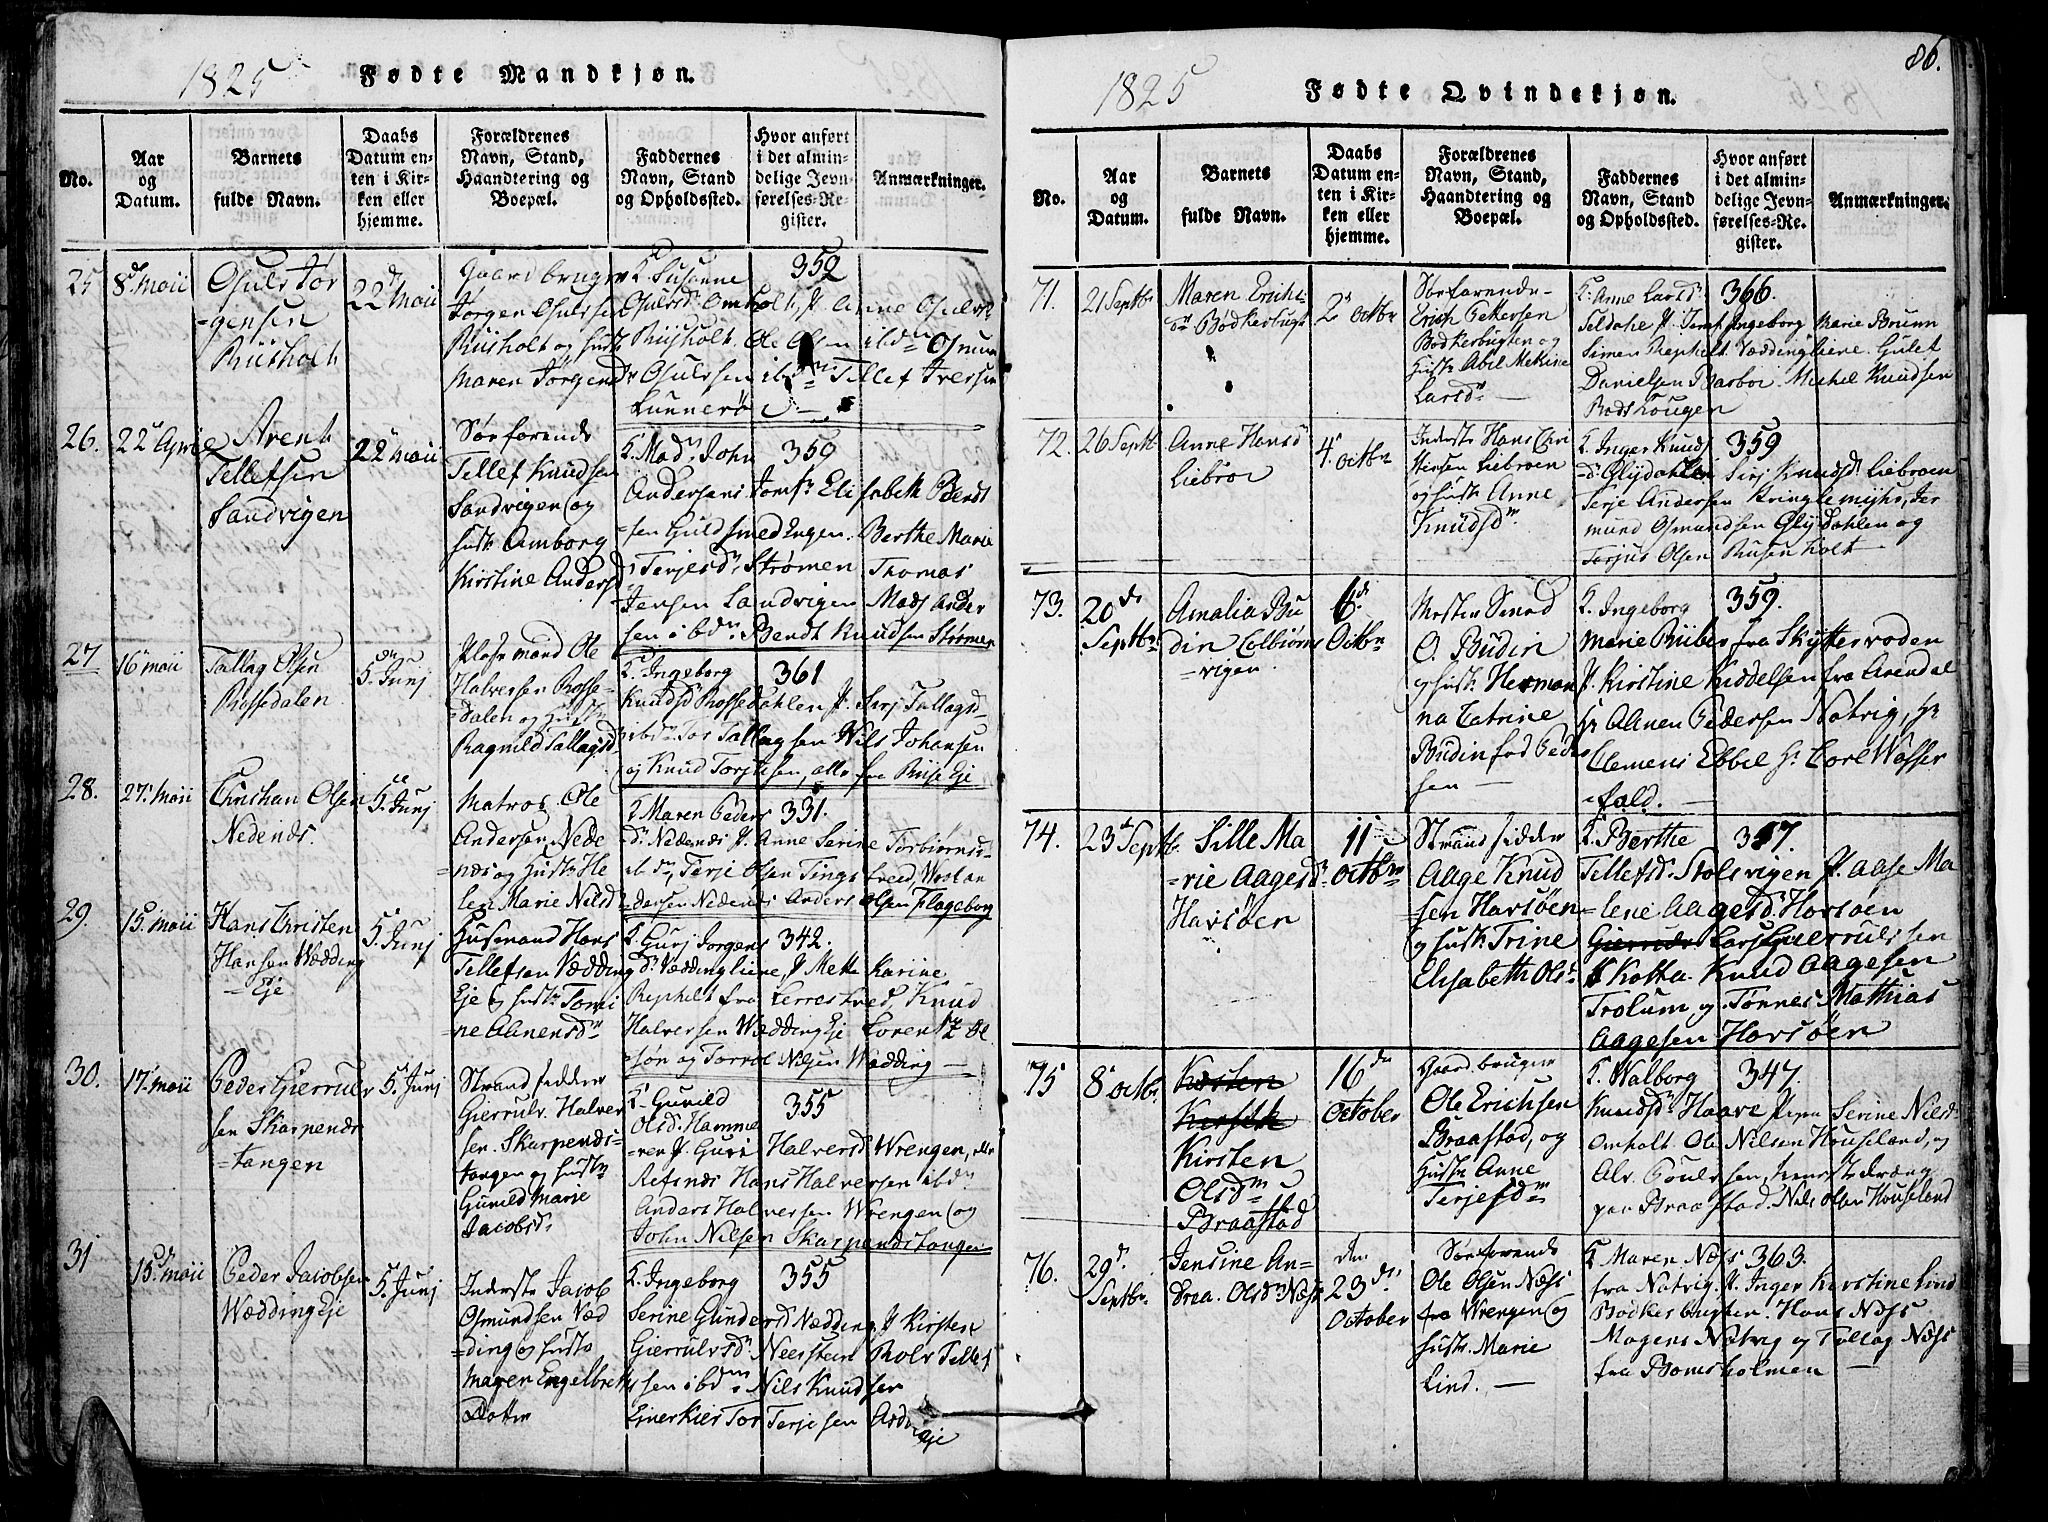 86.
1825 Fødte Mandkjøn.
No.
Aar og Datum.
Barnets fulde Navn.
Daabs Datum enten i Kirken eller hjemme.
Forældrenes Navn, Stand, Haandtering og Boepæl.
Faddernes Navn, Stand og Opholdssted.
Hvor anført i det almindelige Jevnførelses-Register.
Anmærkninger.
25
8de Maii
Osuls Jør
=gensen
Riisholt
22de Maii
Gaardbruger
Jørgen Osulsen
Riisholt og hustr
Maren Jørgensdr
K. Susanne 352
Osulsdr Omholt, P. Anne Osulsdr
Riisholt. Ole Olsen ibdn Osmun
Osulsen ibdm Tellef Iversen
Lunnerö
26.
22d April
Arent
Tellefsen
Sandvigen
22d Maii
Sørfarende
Tellef Knudsen
Sandvigen og
hustr Amborg
Kirstine Andersd
K. Madm John 359
Andersens Jomfr Elisabeth Bendt
=sen Guldsmedengen. Berthe Marie
Terjesdr Strømen Thomas
Jensen Sandvigen Mads Ander
sen ibdm. Bendt Knudsen Strømen
27
16d Maii
Tallag Olsen
Rossedalen
5de Junj
Pladsmand Ole
Halversen Rosse
=dalen og Hustr
Ragnild Tallagsd
K. Ingeborg 361
Knudsd Rossedahlen P. Sirj Tallagsd
ibdm Tor Tallagsen Nils Johansen
og Knud Torjusen, alle fra Riise Eje
28.
27d Maii
Christian Olsen
Nedenæs.
5de Junj
Matros Ole
Andersen Nede
=næs og Hustr He
len Marie Nilsd
K Maren Peders 331.
dr Nedenæs P. Anne Serine Torbiørns
ibdm, Terje Olsen Tingstveed, Westen An
dersen Nedenæs Anders Olsen Flageborg
29.
15de Maii
Hans Christen
Hansen Wædding
=Eje
5 Junj
Husmand Hans
Tellefsen Wædding
Eje og hustr Tomi
=ne Aanensdr
K. Gurj Jorgens 342.
dr Væddingliene, P. Mette Karine
Rephelt fra Lerrestved, Knud
Halversen Wædding Eje Lorentz Ol
søn og Torvol Nilsen Wædding
30.
17d Maii
Peder Gierruls
sen Skarpends
=tangen
5 Junj
Strandsidder
Gierrulv. Halver
sen. Skarpends=
tangen og hustr
Gunild Marie
Jacobsd.
K. Gunild 355
Olsd. Hamme
ren P. Guri Halversd Wrengen,
Refsnæs Hans Halversen ibdn
Anders Halversen Wrengen og
John Nilsen Skarpendstangen
31
15de Maii
Peder Jacobsen
Wædding Eje
5. Junj
Inderste Jacob
Osmundsen Wæd
=ding og hustr
Maren Engelbrets
Datter
K. Ingeborg 355
Serine Gunders dr Wædding. P. Kirsten
Gierrulvsdr Neersteen Rolv Tellef
sen ibdm. Nils Knudsen
Tor Terjesen
eje
1825 Fødte Qvindekjøn.
No.
Aar og Datum.
Barnets fulde Navn.
Daabs Datum enten i Kirken eller hjemme.
Forældrenes Navn, Stand, Haandtering og Boepæl.
Faddernes Navn, Stand og Opholdssted.
Hvor anført i det almindelige Jevnførelses-Register.
Anmærkninger.
71.
21 Septbr
Maren Erichs
dr Bødkerbugt
2de Octbr
Sørfarende
Erich Pettersen
Bodkerbugten og
Hustr Abel Mekine
Larsdr
K. Anne Larsd 366.
Seldahe P. Jomf Ingeborg Marie Brunn
Simen Rephelt Væddingliene. Gulef
Danielsen Barboe. Michel Knudsen
Bodshougen
72.
26 Septbr
Anne Hansd
Liebroe
4. Octbr
Inderste Hans Chri
stensen Liebroen
og hustr Anne
Knudsdr
K. Inger Knuds 359
dr Glydahlen Sirj Knudsdr Liebroen
Terje Andersen Kringlemyhr, Jer
mund Osmundsen Glydahlen og
Torjus Olsen Rusenholt
73.
20de
Septbr
Amalia Bu
din Colbiørns
=vigen
6de
Octbr
O. Budin
og hustr Herman
na Catrine
Budin fød Peder
sen
K. Ingeborg 359.
Marie Riiber fra Skytterroden
P. Kirstine Kiddelsen fra Arendal
Hr Aanen Pedersen Natvig, Hr
Clemens Ebbel Hr Carl Wasser
=fald.
74.
23d Septb
Sille Ma
=rie Aagesdr
Havsöen
11te
Octbr
Strandsidder
Aage Knud
=sen Havsöen
og hustr Trine
Elisabeth Olsd
K. Berthe 347
Tellefsd. Stolsvigen P. Aase Ma
=lene Aagesd. Havsöen
Lars Gierrulssen
Kotta. Knud Aagesen
Trolum og Tønnes Mathias
Aagesen Havsöen
75
8 Octbr.
Kirsten
Olsdr
Braastad
16de
October
Gaardbruger
Ole Erichsen
Braastad, og
Hustr Anne
Terjesdr
K. Walborg 347.
Knudsdr Haave Pigen Serine Nielsd
Omholt Ole Nilsen Houseland, og
Alv Poulssen, tjenestedræng
paa Braastad. Nils Olsen Houseland
76.
29d.
Septbr.
Jensine An=
drea. Olsdr Næss
den
23de
October
Sørfarende
Ole Olsen Næss
fra Wrengen og
hustr. Marie
Lind.
K. Maren Næss 363.
fra Natvig. P. Inger Kirstine Lind
Bodkerbugten. Hans Næss
Mogens Natvig og Tallag Næss
fra Bomsholmen